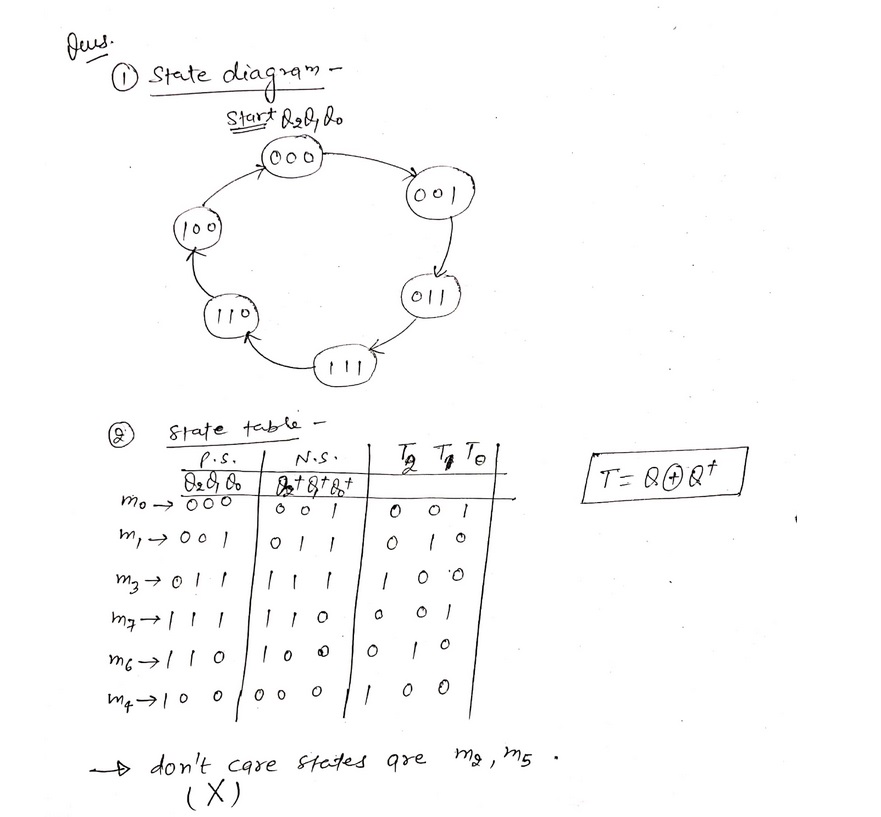 Ques.
① State diagram -
Start Q₂Q₁Q₀
000
001
100
011
110
111
② State table -
P.S. N.S. T₂ T₁ T₀
Q₂Q₁Q₀ Q₂⁺Q₁⁺Q₀⁺
T = Q⊕Q⁺
m₀ → 000 001 001
m₁ → 001 011 010
m₃ → 011 111 100
m₇ → 111 110 001
m₆ → 110 100 010
m₄ → 100 000 100
→ don't care states are m₂, m₅ .
(X)